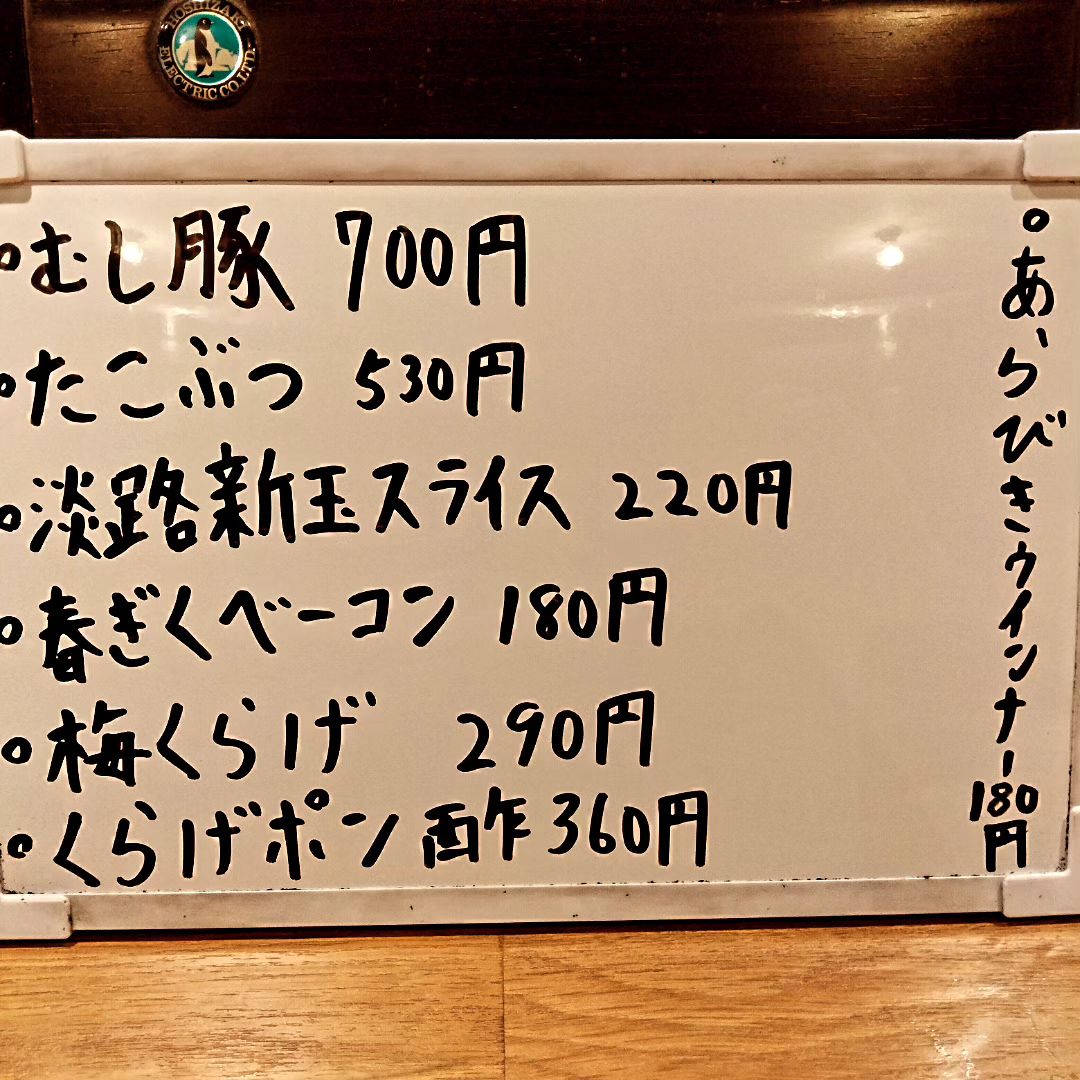 HOSHIZAKI
ELECTRIC CO.LTD.
°むし豚 700円
°たこぶつ 530円
°淡路新玉スライス 220円
°春ぎくベーコン 180円
°梅くらげ 290円
°くらげポン酢 360円
°あらびきウインナー 180円